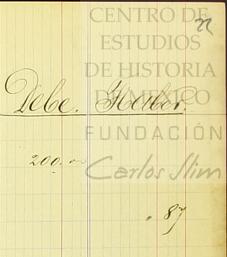 CENTRO DE
ESTUDIOS
DE HISTORIA
DE MÉXICO
Debe. Haber.
FUNDACIÓN
200.00
Carlos Slim
" 87